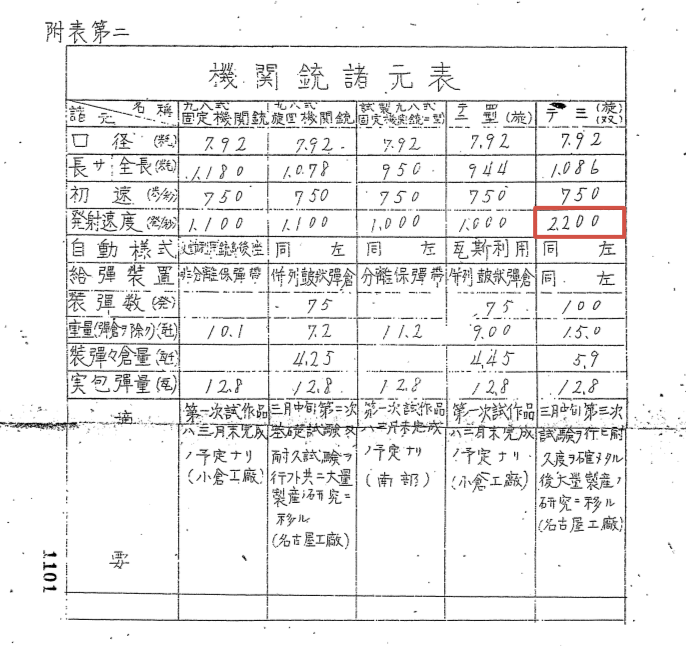 附表第二
機関銃諸元表
諸元 名称 九八式固定機関銃 九八式旋回機関銃 試製九八式固定機関銃二型 テ三 (旋双)
口径(粍) 7.92 7.92 7.92 7.92 7.92
長サ 全長(粍) 1.180 1.078 950 944 1.086
初速 750 750 750 750 750
発射速度(発/分) 1.100 1.100 1.000 1.000 2.200
自動様式 同左 同左 瓦斯利用 同左
給弾装置 非分離保弾帯 併列鼓状弾倉 分離保弾帯 併列鼓状弾倉 同左
装弾数(発) 75 75 100
重量(弾倉ヲ除ク)(瓩) 10.1 7.2 11.2 9.00 15.0
装弾々倉量(瓩) 4.25 4.45 5.9
実包弾量(瓦) 12.8 12.8 12.8 12.8 12.8
摘要
第一次試作品
八三月末完成
ノ予定ナリ
(小倉工廠)
三月中旬第二次
基礎試験及
耐久試験ヲ
行フ共ニ大量
製産ノ研究ニ
移ル
(名古屋工廠)
第一次試作品
八三月末完成
ノ予定ナリ
(南部)
第一次試作品
八三月末完成
ノ予定ナリ
(小倉工廠)
三月中旬第三次
試験ヲ行ヒ耐
久度ヲ確メタル
後大量製産ノ
研究ニ移ル
(名古屋工廠)
1101